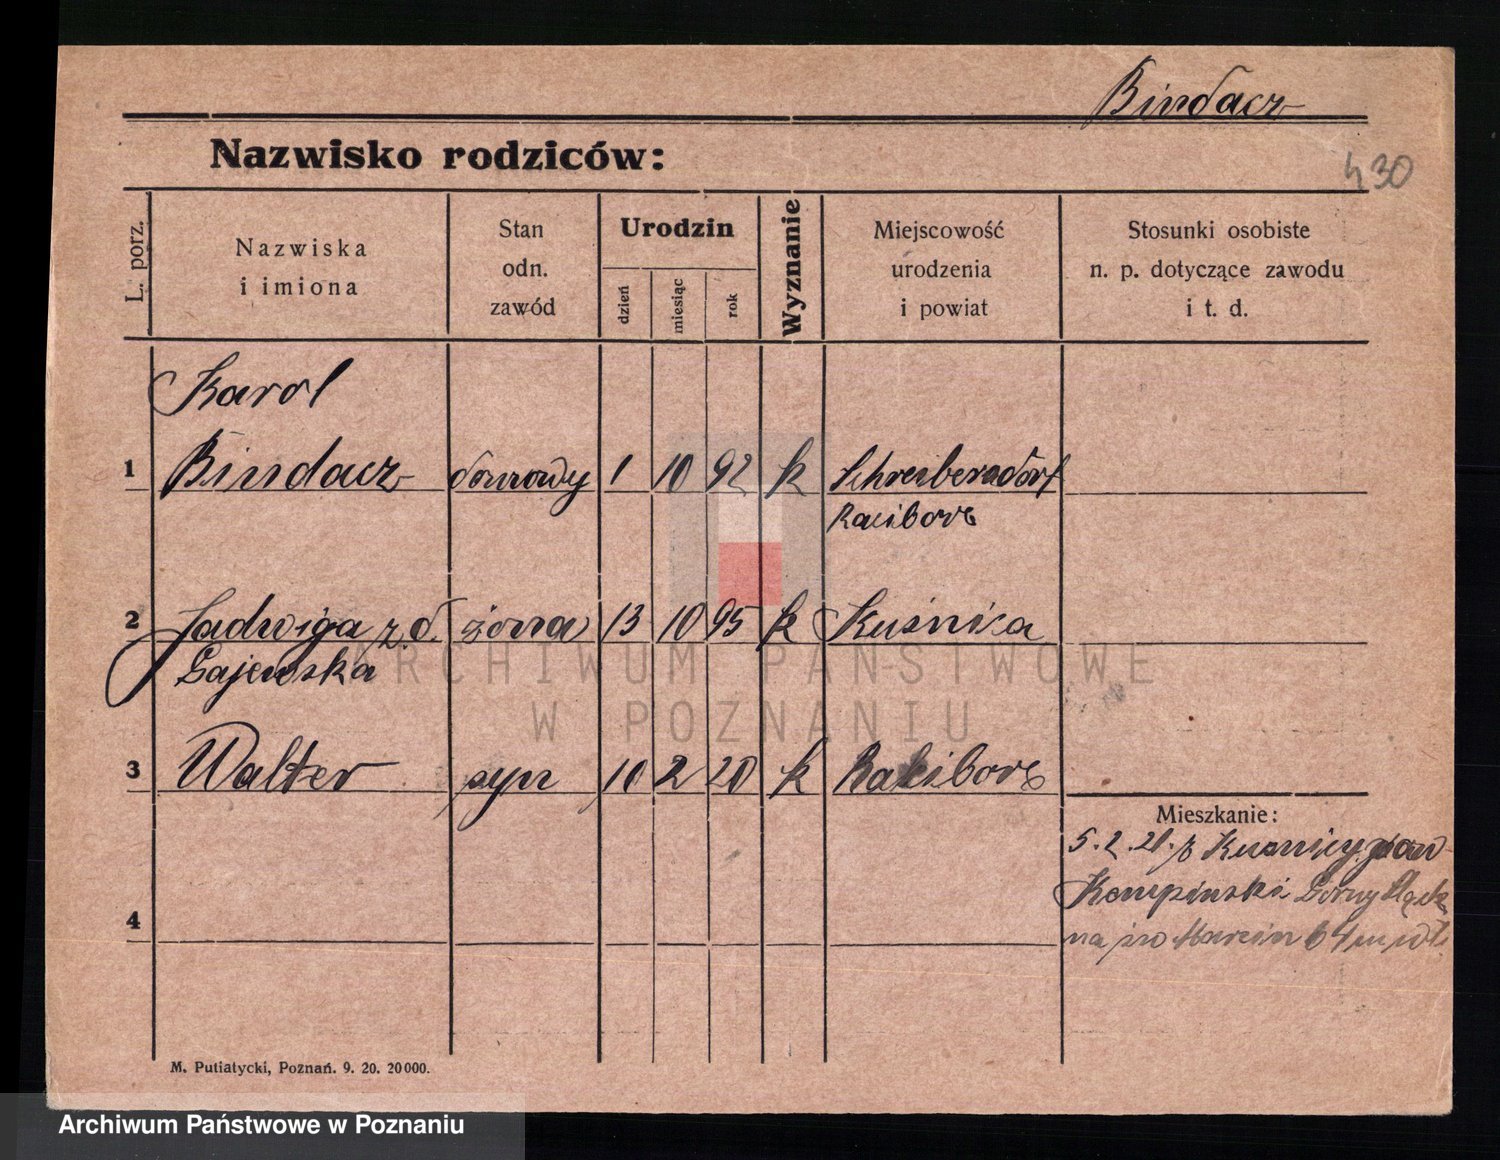 Bindacz
Nazwisko rodziców:
430
L. porz.
Nazwiska
i imiona
Stan
odn.
zawód
Urodzin
dzień
miesiąc
rok
Wyznanie
Miejscowość
urodzenia
i powiat
Stosunki osobiste
n. p. dotyczące zawodu
i t. d.
Karol
1 Bindacz 1 10 92 k Schreibersdorf
Racibórz
2 Jadwiga z d. żona 13 10 95 k Kuźnica
Gajewska
3 Walter syn 10 2 20 k Racibórz
Mieszkanie:
5. 2. 21. z Kuźnicy pow
Kempiński Górny Śląsk
na św Marcin 64
4
M. Putiatycki, Poznań. 9. 20. 20000.
ARCHIWUM PAŃSTWOWE
W POZNANIU
Archiwum Państwowe w Poznaniu